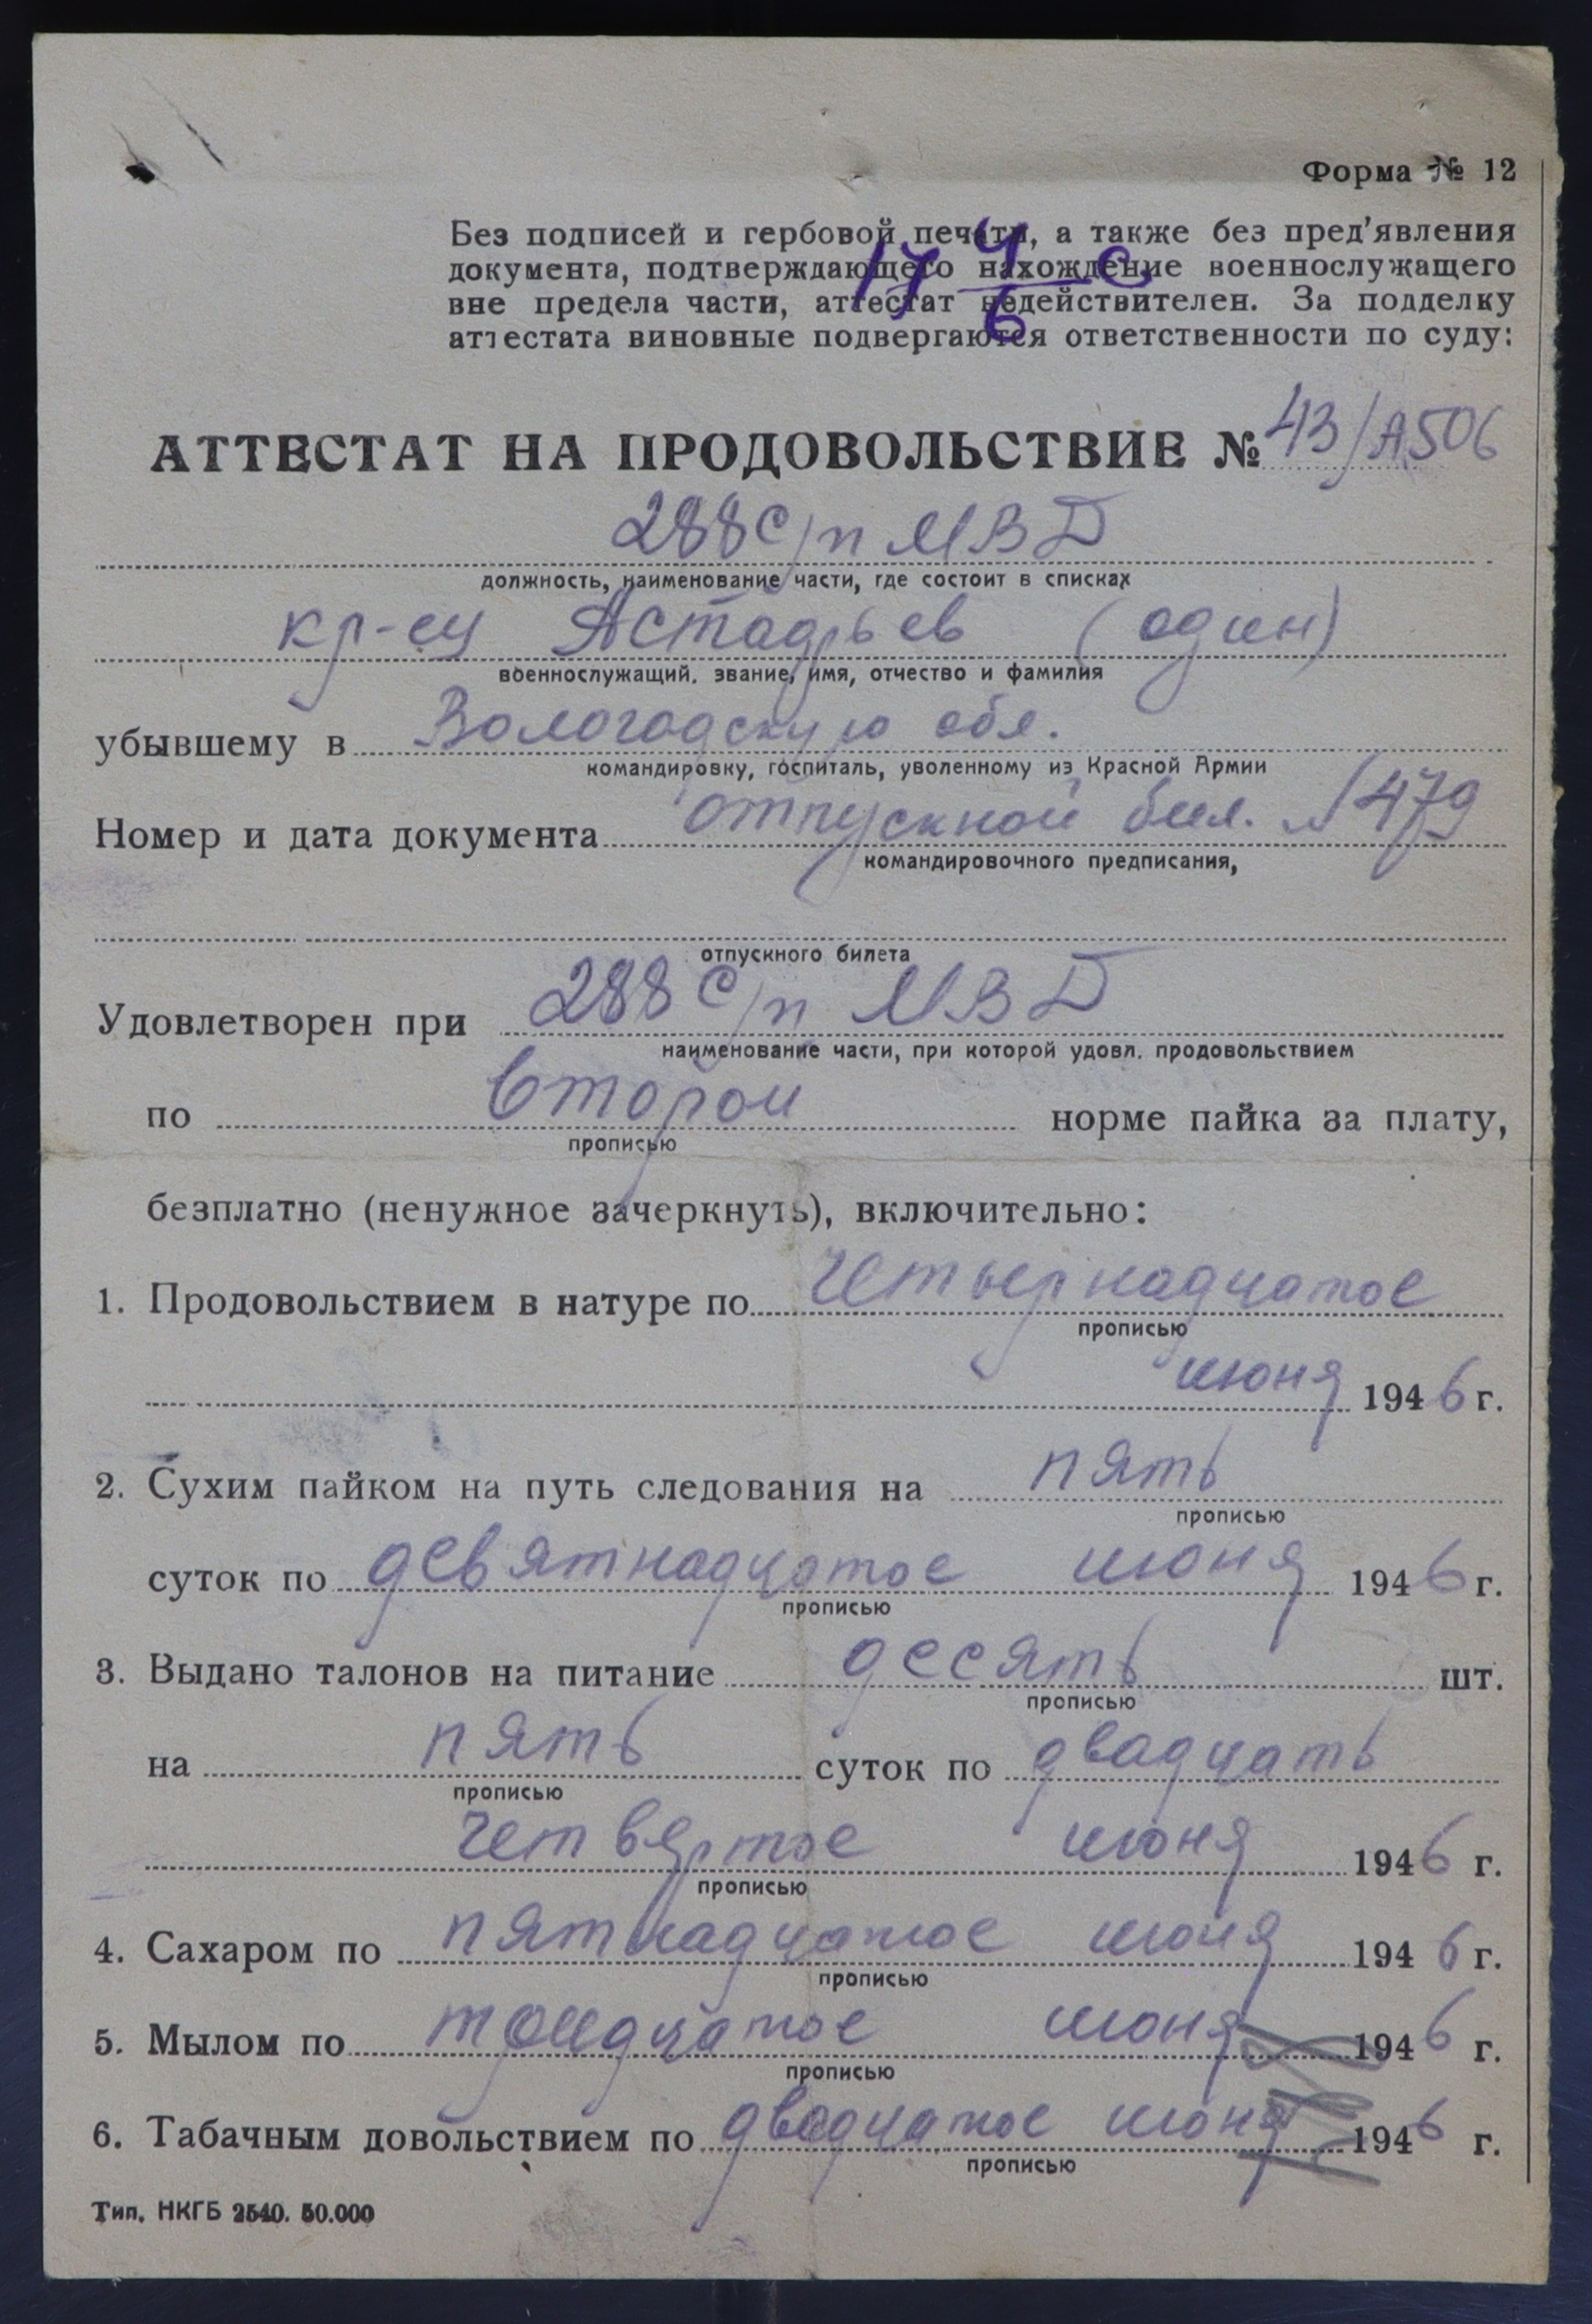 Форма № 12
Без подписей и гербовой печати, а также без пред'явления
документа, подтверждающего нахождение военнослужащего
вне предела части, аттестат недействителен. За подделку
аттестата виновные подвергаются ответственности по суду:
17 4/6 с
АТТЕСТАТ НА ПРОДОВОЛЬСТВИЕ № 43/А506
288 с/п МВД
должность, наименование части, где состоит в списках
кр-ец Астадьев (один)
военнослужащий. звание, имя, отчество и фамилия
убывшему в Вологодскую обл.
командировку, госпиталь, уволенному из Красной Армии
Номер и дата документа отпускной бил. № 1479
командировочного предписания,
отпускного билета
Удовлетворен при 288 с/п МВД
наименование части, при которой удовл. продовольствием
по второй норме пайка за плату,
прописью
безплатно (ненужное зачеркнуть), включительно:
1. Продовольствием в натуре по четырнадцатое
прописью
июня 1946 г.
2. Сухим пайком на путь следования на пять
прописью
суток по девятнадцатое июня 1946 г.
прописью
3. Выдано талонов на питание десять шт.
прописью
на пять суток по двадцать
прописью
четвертое июня 1946 г.
прописью
4. Сахаром по пятнадцатое июня 1946 г.
прописью
5. Мылом по тридцатое июня 1946 г.
прописью
6. Табачным довольствием по двадцатое июня 1946 г.
прописью
Тип. НКГБ 2540. 50.000